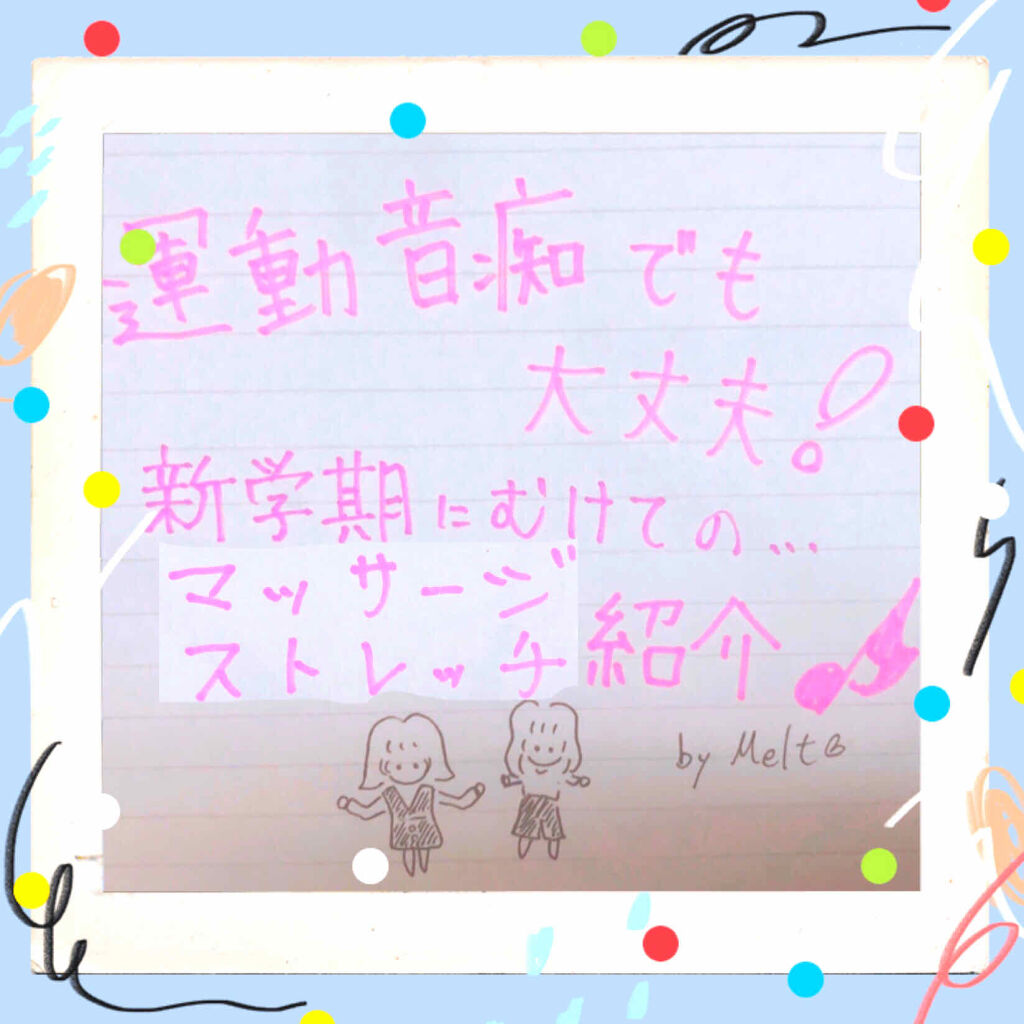 運動音痴でも
大丈夫!
新学期にむけての...
マッサージ
ストレッチ紹介♪
by Melt